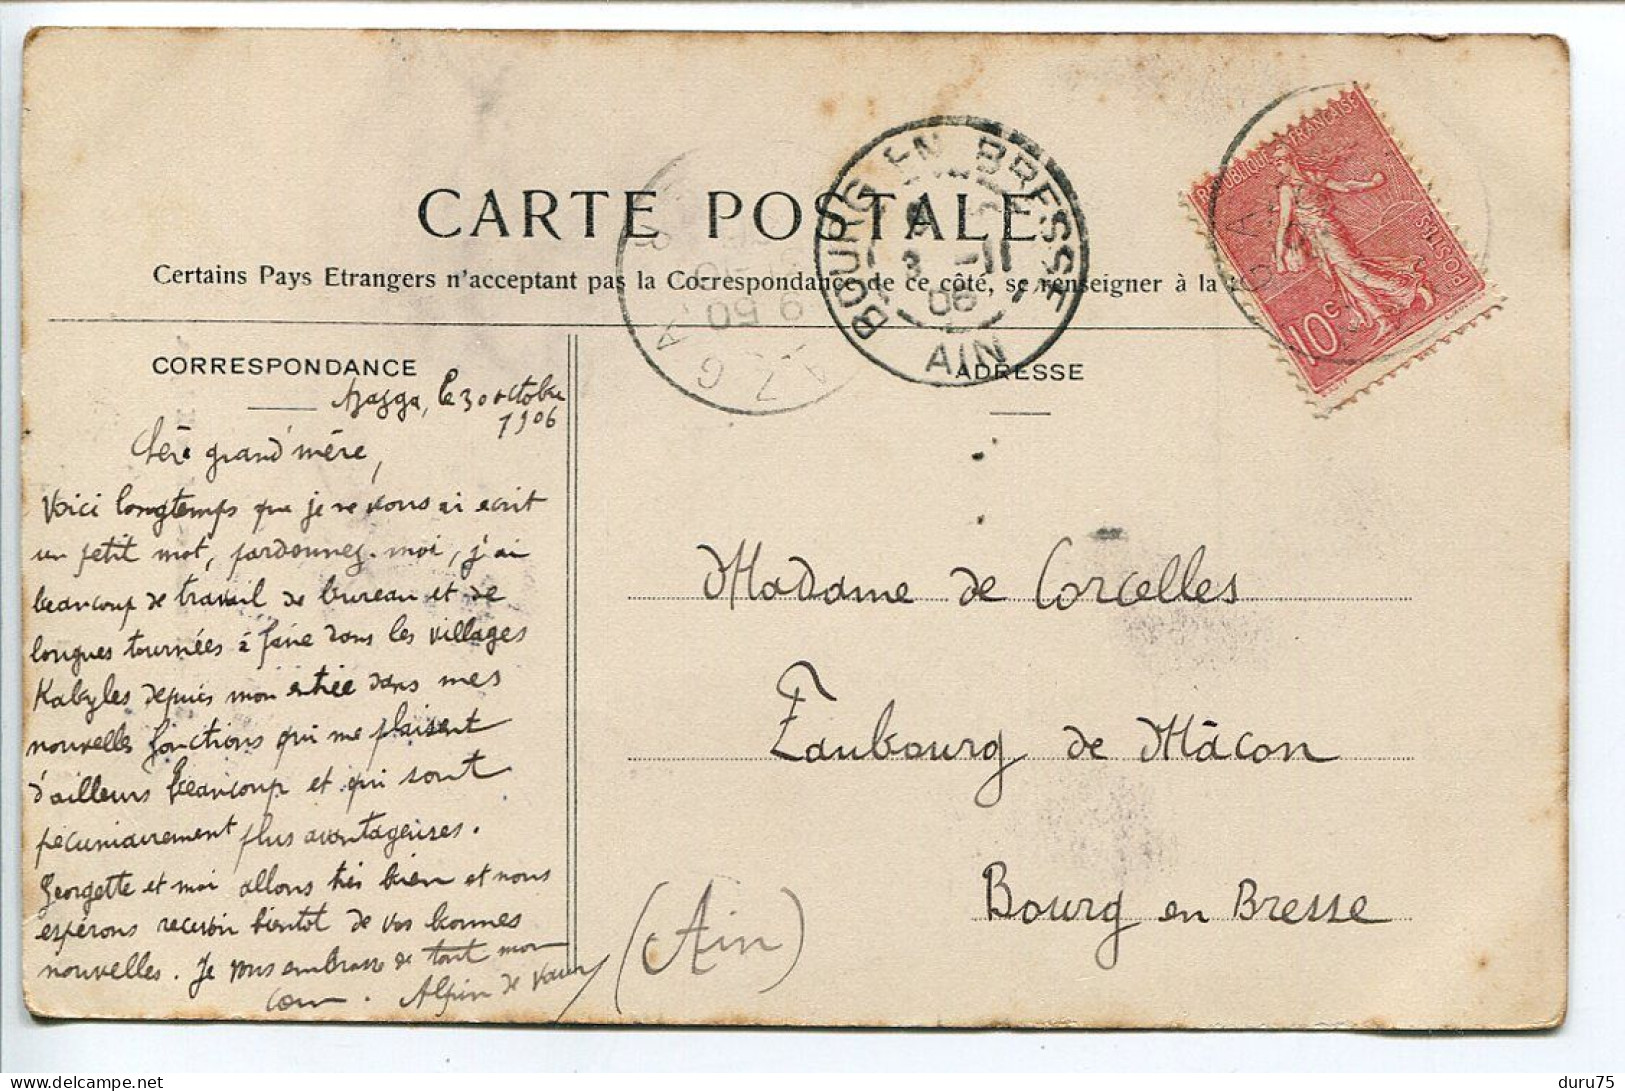 CARTE POSTALE
Certains Pays Etrangers n'acceptent pas la Correspondance de ce côté, se renseigner à la
CORRESPONDANCE
Azazga, le 30 octobre
1906
Chère grand'mère,
Voici longtemps que je ne vous ai ecrit
un petit mot, pardonnez-moi, j'ai
beaucoup de travail de bureau et de
longues tournées à faire dans les villages
Kabyles depuis mon entrée dans mes
nouvelles fonctions qui me plaisent
d'ailleurs beaucoup et qui sont
pécuniairement plus avantageuses.
Georgette et moi allons très bien et nous
espérons recevoir bientôt de vos bonnes
nouvelles. Je vous embrasse de tout mon
coeur. Alpin de
ADRESSE
Madame de Corcelles
Faubourg de Mâcon
Bourg en Bresse
(Ain)
BOURG EN BRESSE
3 -11
06
AIN
AZAZGA
9 50
REPUBLIQUE FRANÇAISE
POSTES
10c
duru75